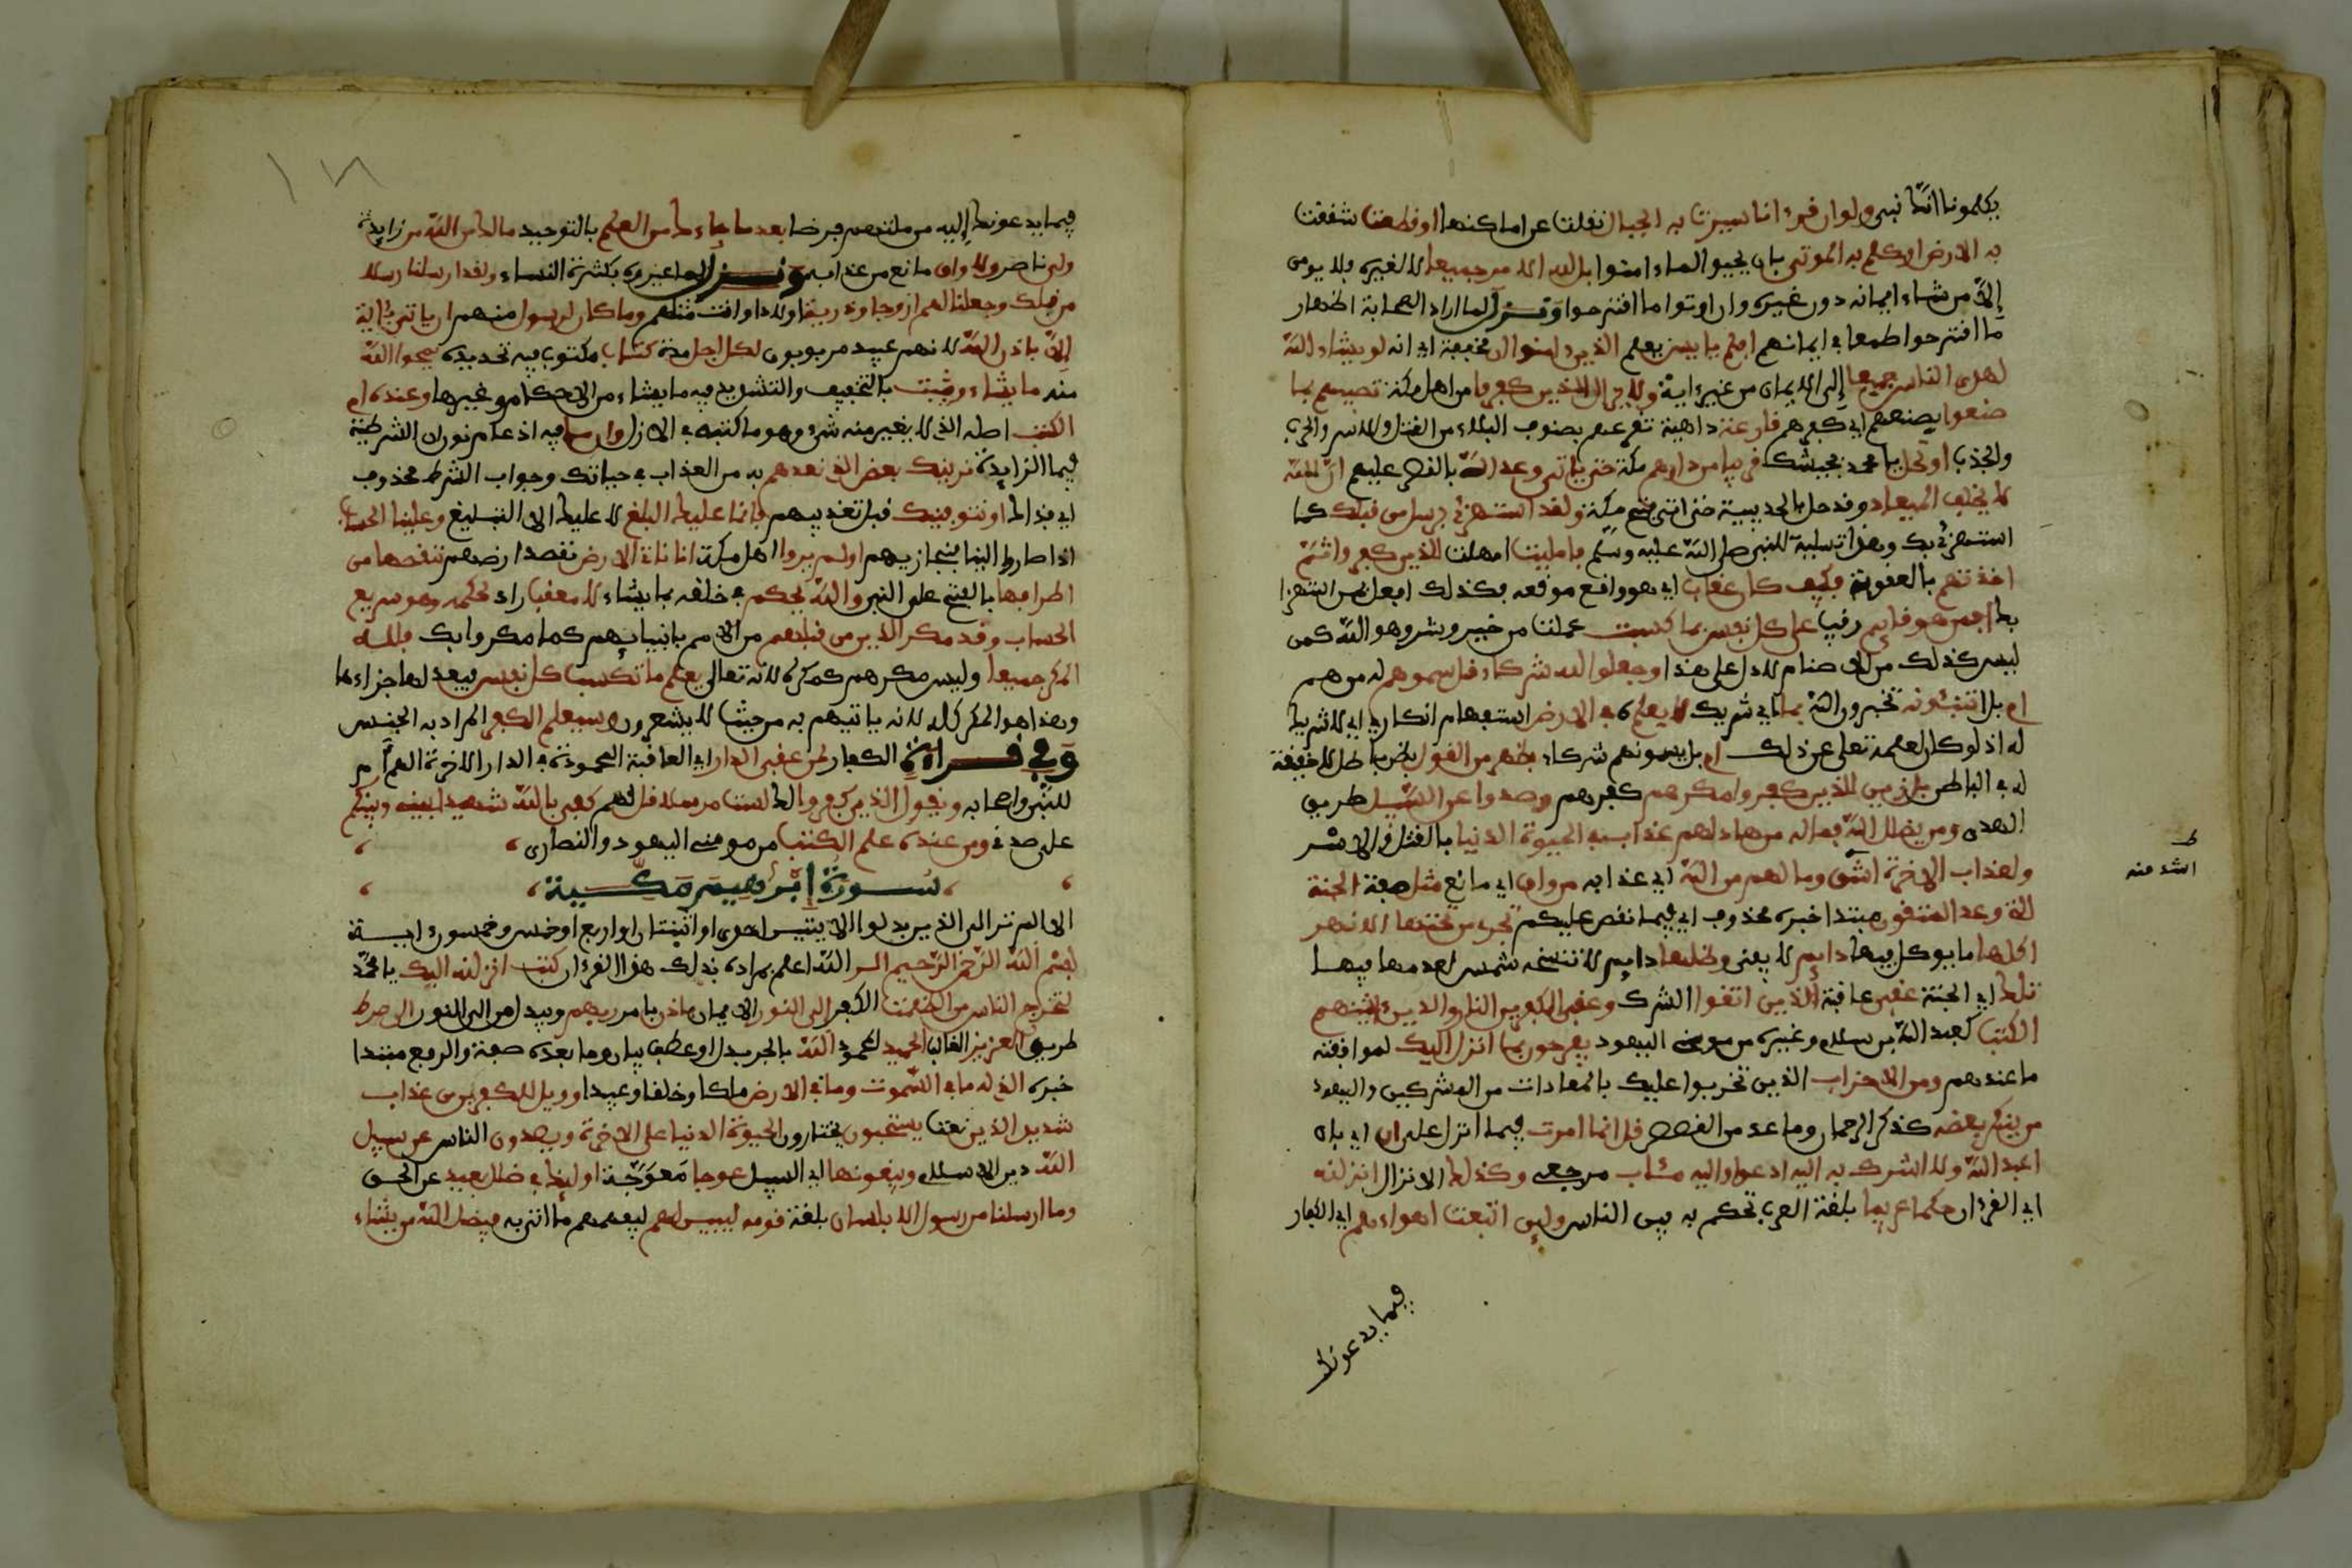 يكلمونا انك نبي ولو ان قرءانا سيرت به الجبال نقلت عن اماكنها او قطعت شققت
به الارض او كلم به الموتى بان يحيوا لما ءامنوا بل لله الامر جميعا لا لغيره فلا يومن
إلا من شاء ايمانه دون غيره وان اوتوا ما اقترحوا ونزل لما اراد الصحابة اظهار
ما اقترحوا طمعا في ايمانهم افلم يايئس يعلم الذين ءامنوا ان مخففة اي انه لو يشاء الله
لهدى الناس جميعا إلى الايمان من غير ءاية ولا يزال الذين كفروا من اهل مكة تصيبهم بما
صنعوا بصنعهم اي كفرهم قارعة داهية تقرعهم بصنوف البلاء من القتل والاسر والحرب
والجدب او تحل يا محمد بجيشك قريبا من دارهم مكة حتى ياتي وعد الله بالنصر عليهم ان الله
لا يخلف الميعاد وقد حل بالحديبية حتى اتى فتح مكة ولقد استهزئ برسل من قبلك كما
استهزئ بك وهذا تسلية للنبي صلى الله عليه وسلم فامليت امهلت للذين كفروا ثم
اخذتهم بالعقوبة فكيف كان عقاب اي هو واقع موقعه فكذلك افعل بمن استهزا
بك افمن هو قائم رقيب على كل نفس بما كسبت عملت من خير وشر وهو الله كمن
ليس كذلك من الاصنام لا دل على هذا وجعلوا لله شركاء قل سموهم له من هم
ام بل اتنبئونه تخبرون الله بما اي شريك لا يعلمه في الارض استفهام انكار اي لا شريك
له اذ لو كان لعلمه تعلى عن ذلك ام بل تسمونهم شركاء بظهر من القول بظن باطل لا حقيقة
له في الباطن بل زين للذين كفروا مكرهم كفرهم وصدوا عن السبيل طريق
الهدى ومن يضلل الله فما له من هاد لهم عذاب في الحيوة الدنيا بالقتل والاسر
ولعذاب الاخرة اشق وما لهم من الله اي عذابه من واق اي مانع مثل صفة الجنة
التي وعد المتقون مبتدا خبره محذوف اي فيما نقص عليكم تجري من تحتها الانهر
اكلها ما يوكل فيها دايم لا يفنى وظلها دايم لا تنسخه شمس لعدمها فيها
تلك اي الجنة عقبى عاقبة الذين اتقوا الشرك وعقبى الكفرين النار والذين ءاتينهم
الكتب كعبد الله بن سلام وغيره من مومني اليهود يفرحون بما انزل اليك لموافقته
ما عندهم ومن الاحزاب الذين تحزبوا عليك بالمعادات من المشركين واليهود
من ينكر بعضه كذكر الرحمان وما عد من القصص قل انما امرت فيما انزل علي ان اي بان
اعبد الله ولا اشرك به اليه ادعوا واليه مئاب مرجعي وكذلك الانزال انزلنه
اي القرءان حكما عربيا بلغة العرب تحكم به بين الناس ولين اتبعت اهواءهم اي الكفار
فيما يدعونك
ط
اشد منه
١٧٨
فيما يدعونك إليه من ملتهم فرضا بعد ما جاءك من العلم بالتوحيد مالك من الله من زايدة
ولي ناصر ولا واق مانع من عذابه ونزل لما عيروه بكثرة النساء ولقد ارسلنا رسلا
من قبلك وجعلنا لهم ازوجا وذرية اولادا وانت مثلهم وما كان لرسول منهم ان ياتي بئاية
إلا باذن الله لانهم عبيد مربوبون لكل اجل مدة كتاب مكتوب فيه تحديده يمحوا الله
منه ما يشاء ويثبت بالتخفيف والتشديد فيه ما يشاء من الاحكام وغيرها وعنده ام
الكتب اصله الذي لا يغير منه شيء وهو ما كتبه في الازل وان ما فيه ادغام نون ان الشرطية
فيما الزايدة نرينك بعض الذي نعدهم به من العذاب في حياتك وجواب الشرط محذوف
اي فذاك او نتوفينك قبل تعذيبهم فانما عليك البلغ لا عليك الا التبليغ وعلينا الحساب
اذا صاروا الينا فنجازيهم اولم يروا اهل مكة انا ناتي الارض نقصد ارضهم ننقصها من
اطرافها بالفتح على النبي والله يحكم في خلقه بما يشاء لا معقب راد لحكمه وهو سريع
الحساب وقد مكر الذين من قبلهم من الامم بانبيائهم كما مكروا بك فلله
المكر جميعا وليس مكرهم كمكره لانه تعالى يعلم ما تكسب كل نفس فيعد لها جزاءها
وهذا هو المكر كله لانه ياتيهم به من حيث لا يشعرون وسيعلم الكفر المراد به الجنس
وفي قراءة الكفار لمن عقبى الدار اي العاقبة المحمودة في الدار الاخرة الهم ام
للنبي واصحابه ويقول الذين كفروا لك لست مرسلا قل لهم كفى بالله شهيدا بيني وبينكم
على صدقي ومن عنده علم الكتب من مومني اليهود والنصارى
سورة إبرهيم مكية
الا الم تر الى الذين بدلوا الايتين احدى او اثنتان او اربع او خمس وخمسون ءاية
بسم الله الرحمن الرحيم الر الله اعلم بمراده بذلك هذا القرءان كتب انزلنه اليك يا محمد
لتخرج الناس من الظلمت الكفر إلى النور الايمان باذن بامر ربهم ويبدل من الى النور الى صرط
طريق العزيز الغالب الحميد المحمود الله بالجر بدل او عطف بيان وما بعده صفة والرفع مبتدا
خبره الذي له ما في السموت وما في الارض ملكا وخلقا وعبيدا وويل للكفرين من عذاب
شديد الذين نعت يستحبون يختارون الحيوة الدنيا على الاخرة ويصدون الناس عن سبيل
الله دين الاسلام ويبغونها اي السبيل عوجا معوجة اوليك في ضلل بعيد عن الحق
وما ارسلنا من رسول الا بلسان بلغة قومه ليبين لهم ليفهمهم ما اتى به فيضل الله من يشاء